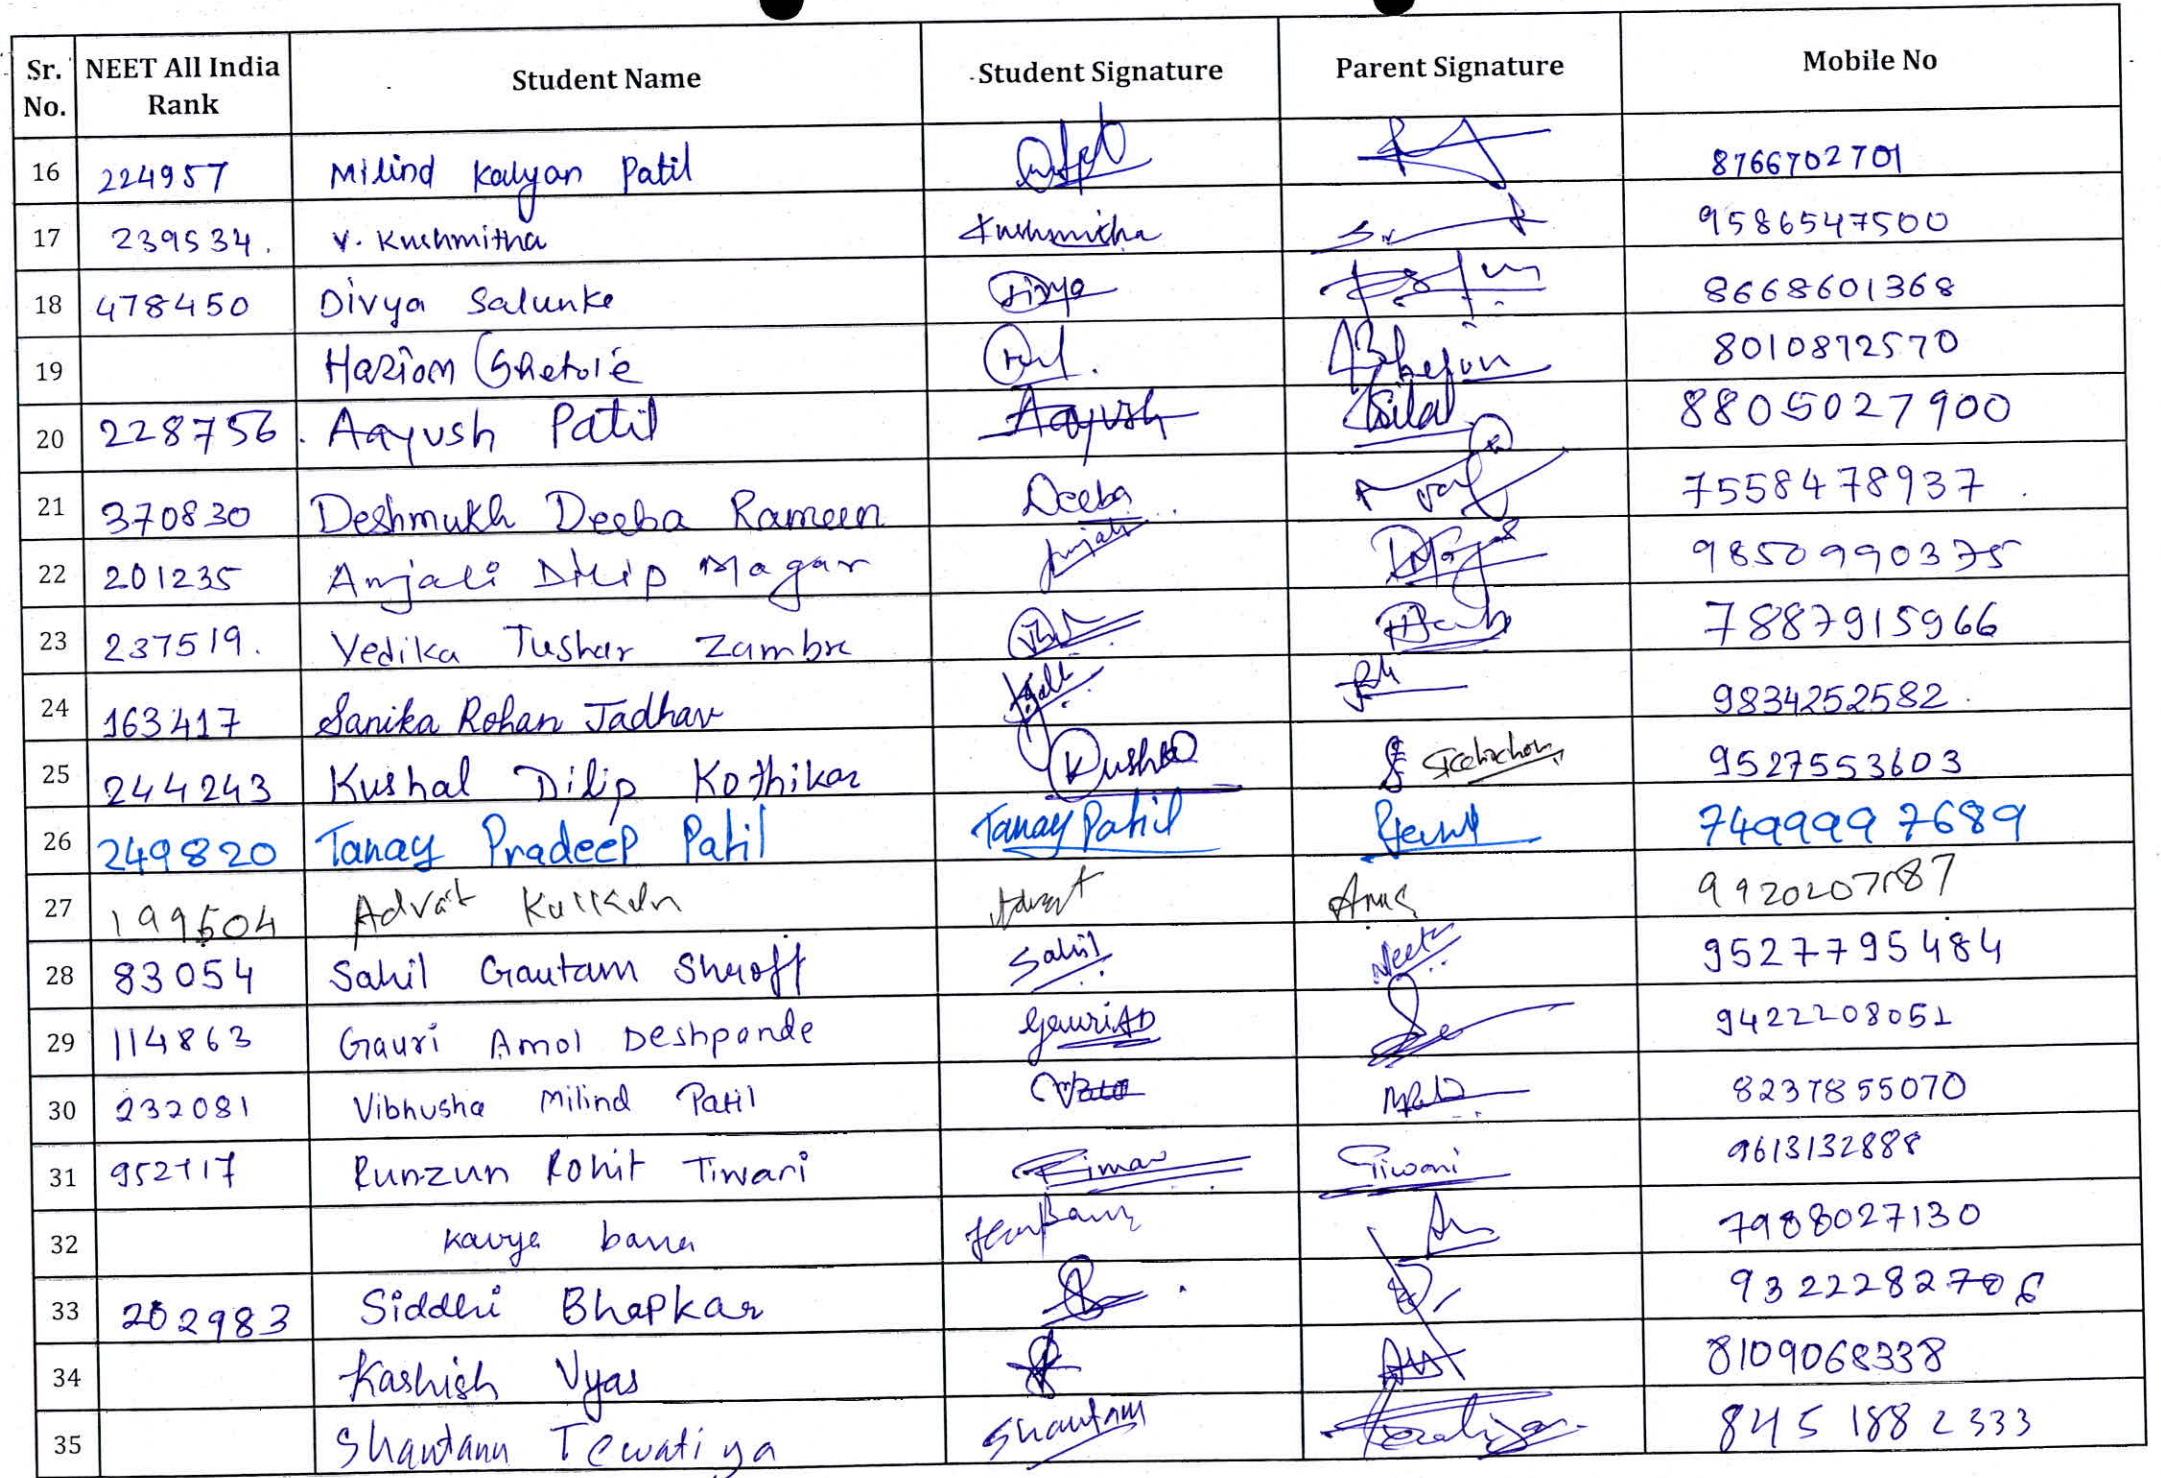 Sr. No. NEET All India Rank Student Name Student Signature Parent Signature Mobile No
16 224957 Milind Kalyan Patil 8766702701
17 239534. V. Kushmitha Kushmitha 9586547500
18 478450 Divya Salunke Divya 8668601368
19 Hariom 8010872570
20 228756. Aayush Patil Aayush 8805027900
21 370830 Deshmukh Deeba Rameen Deeba 7558478937.
22 201235 Anjali Dilip Magar Anjali 9850990375
23 237519. Vedika Tushar Zambre 7887915966
24 163417 Sanika Rohan Jadhav 9834252582.
25 244243 Kushal Dilip Kothikar Kushal 9527553603
26 249820 Tanay Pradeep Patil Tanay Patil 7499997689
27 199504 Advait
28 83054 Sahil Gautam Shroff Sahil Neeta 9527795484
29 114863 Gauri Amol Deshpande GauriAD 9422208051
30 232081 Vibhusha Milind Patil 8237855070
31 952117 Runzun Rohit Tiwari Tiwari 9613132888
32 Kavya 7988027130
33 202983 Siddhi Bhapkar
34 Kashish Vyas 8109068338
35 Shantanu Tewatiya Shantanu 8451882333